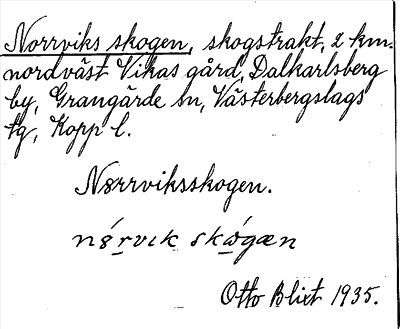 Norrviks skogen, skogstrakt, 2 km.
nordväst Vikas gård, Dalkarlsberg
by, Grangärde sn, Västerbergslags
tg, Kopp l.
Nørrviksskogen.
nǿrvɩk skǿgæn
Otto Blixt 1935.